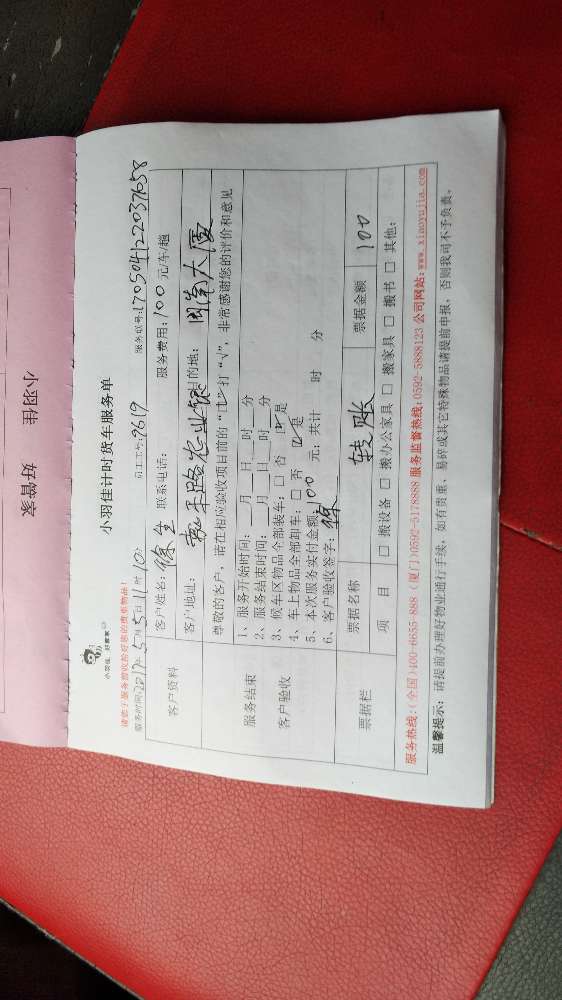 小羽佳 好管家
小羽佳，好管家
小羽佳计时货车服务单
请您于服务前收拾好您的贵重物品！
服务时间：2017年5月5日11时10分 员工工号：9619 服务单号：1705041122037658
客户资料
客户姓名：徐生 联系电话： 服务费用：100元/车/趟
客户地址：嘉禾路农业银 目的地：闽南大厦
服务结束
客户验收
尊敬的客户，请在相应验收项目前的“□”打“√”，非常感谢您的评价和意见
1、服务开始时间：___月___日___时___分
2、服务结束时间：___月___日___时___分
3、候车区物品全部装车：□ 否 ☑ 是
4、车上物品全部卸车：□ 否 ☑ 是
5、本次服务实付金额：100 元；共计 时 分
6、客户验收签字：徐
票据栏
票据名称 转账 票据金额 100
项 目 □ 搬设备 □ 搬办公家具 □ 搬家具 □ 搬书 □ 其他：
服务热线：(全国)400-6655-888 (厦门)0592-5178888 服务监督热线：0592-5888123 公司网站：www.xiaoyujia.com
温馨提示：请提前办理好物业通行手续，如有贵重、易碎或其它特殊物品请提前申报，否则我司不予负责。